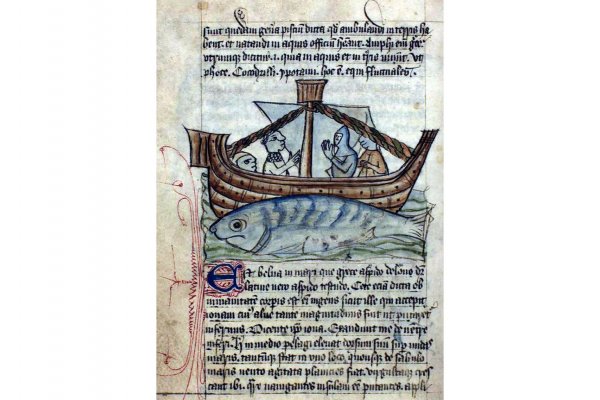 sunt quedam gen̄a pisciū dicta qd̄ ambulandi in terris ha
bent. et natandi in aquis officiū hēant. Amphi em̄ grece
utrumque dicitur .i. quia in aquis et in t̄ris uiuūt. Ut
phoce. Cocodrilli. ypotami. hoc ē. equi fluctuales.
Est belua in mari que grece aspido delone dr̄
latine uero aspido testudo. Cete eciā dicta ob
immanitatem corpis est em̄ ingens sicut ille qui accepit
ionam cui᷒ aluus tante magnitudinis fuit ut putaret
infernus. Dicente ipō iona. Exaudiuit me de uentre
inferi. in medio pelagi eleuat dorsum suū sup undas
maris. tantūque stat in uno loco. quousque de sabulo
maris uento agitata planicies fiat. uirgultaque cres
cant ibi. nauigantes insulam eē putantes. appli